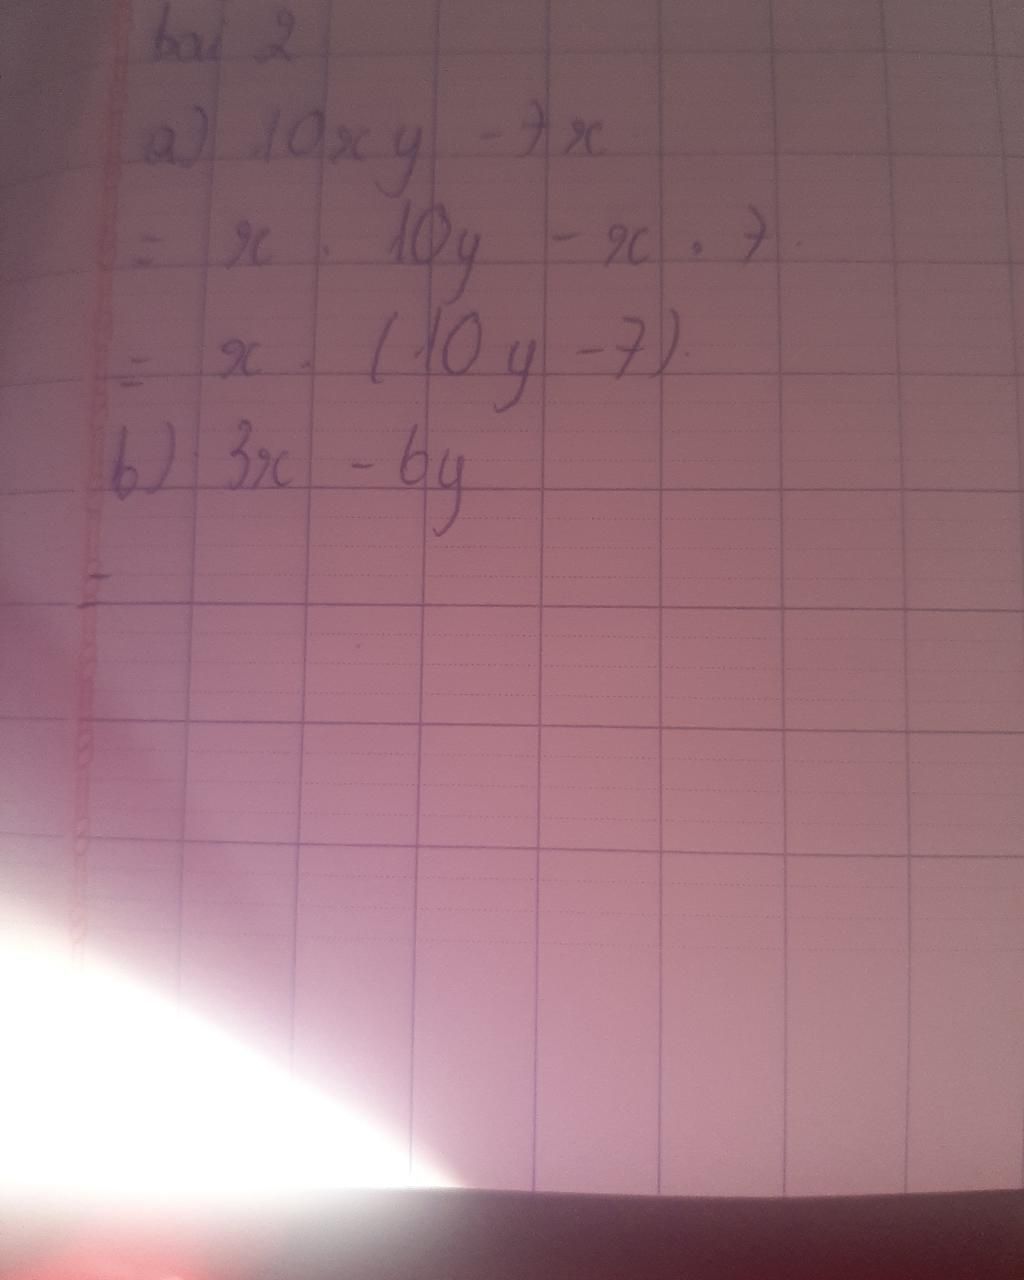 bài 2
a) 10xy - 7x
= x . 10y - x . 7
= x . (10y - 7)
b) 3x - 6y
=